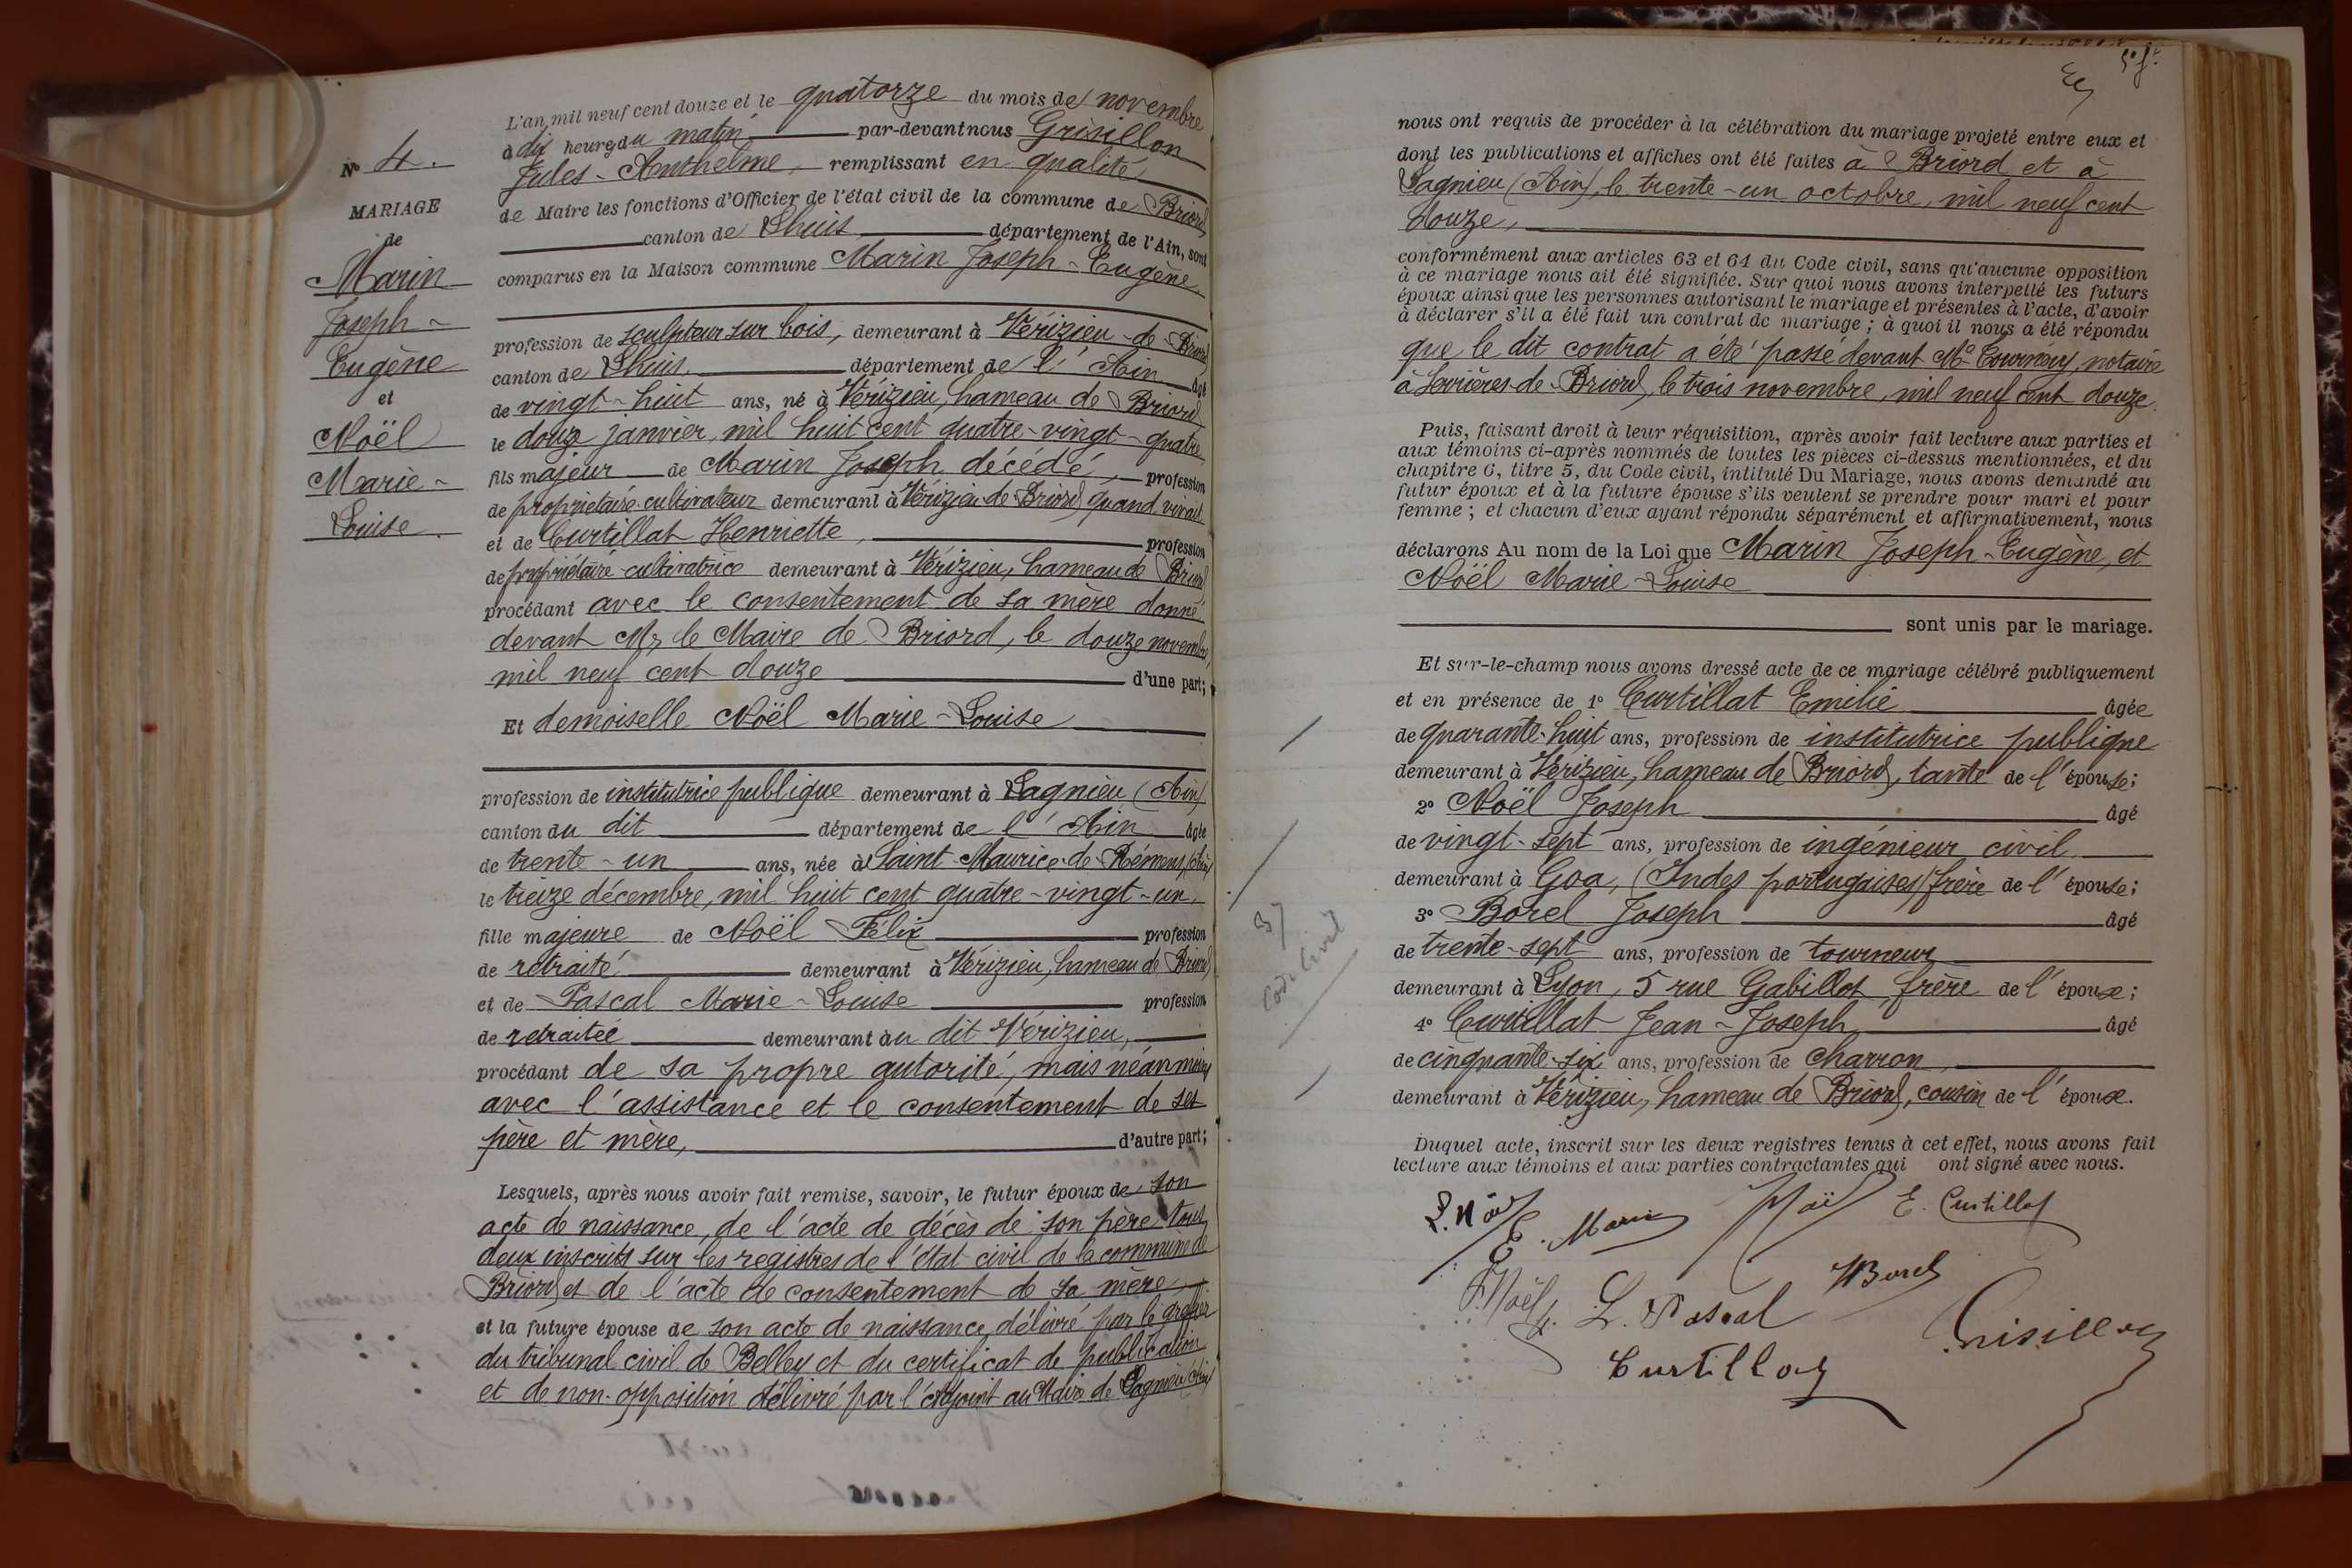 N° 4.
MARIAGE
de
Marin
Joseph-
Eugène
et
Noël
Marie-
Louise.
L'an mil neuf cent douze et le quatorze du mois de novembre
à dix heures du matin par-devant nous Grisillon
Jules-Anthelme, remplissant en qualité
de Maire les fonctions d'Officier de l'état civil de la commune de Briord
canton de Lhuis département de l'Ain, sont
comparus en la Maison commune Marin Joseph-Eugène
profession de sculpteur sur bois, demeurant à Vérizieu-de-Briord
canton de Lhuis département de l'Ain âgé
de vingt-huit ans, né à Vérizieu, hameau de Briord
le douze janvier, mil huit cent quatre-vingt-quatre,
fils majeur de Marin Joseph décédé, profession
de propriétaire-cultivateur demeurant à Vérizieu de Briord, quand vivait
et de Curtillat Henriette, profession
de propriétaire-cultivatrice demeurant à Vérizieu, hameau de Briord,
procédant avec le consentement de sa mère donné
devant Mr le Maire de Briord, le douze novembre,
mil neuf cent douze d'une part;
Et demoiselle Noël Marie-Louise
profession de institutrice publique demeurant à Lagnieu (Ain)
canton du dit département de l'Ain âgée
de trente-un ans, née à Saint-Maurice-de-Rémens, (Ain)
le treize décembre, mil huit cent quatre-vingt-un,
fille majeure de Noël Félix profession
de retraité demeurant à Vérizieu, hameau de Briord
et de Pascal Marie-Louise profession
de retraitée demeurant au dit Vérizieu,
procédant de sa propre autorité, mais néanmoins
avec l'assistance et le consentement de ses
père et mère, d'autre part;
Lesquels, après nous avoir fait remise, savoir, le futur époux de son
acte de naissance, de l'acte de décès de son père tous
deux inscrits sur les registres de l'état civil de la commune de
Briord, et de l'acte de consentement de sa mère,
et la future épouse de son acte de naissance, délivré par le greffier
du tribunal civil de Belley et du certificat de publication
et de non-opposition délivré par l'adjoint au Maire de Lagnieu (Ain)
nous ont requis de procéder à la célébration du mariage projeté entre eux et
dont les publications et affiches ont été faites à Briord et à
Lagnieu (Ain), le trente-un octobre, mil neuf cent
douze,
conformément aux articles 63 et 64 du Code civil, sans qu'aucune opposition
à ce mariage nous ait été signifiée. Sur quoi nous avons interpellé les futurs
époux ainsi que les personnes autorisant le mariage et présentes à l'acte, d'avoir
à déclarer s'il a été fait un contrat de mariage; à quoi il nous a été répondu
que le dit contrat a été passé devant Me Tournéry, notaire
à Serrières-de-Briord, le trois novembre, mil neuf cent douze.
Puis, faisant droit à leur réquisition, après avoir fait lecture aux parties et
aux témoins ci-après nommés de toutes les pièces ci-dessus mentionnées, et du
chapitre 6, titre 5, du Code civil, intitulé Du Mariage, nous avons demandé au
futur époux et à la future épouse s'ils veulent se prendre pour mari et pour
femme; et chacun d'eux ayant répondu séparément et affirmativement, nous
déclarons Au nom de la Loi que Marin Joseph-Eugène, et
Noël Marie-Louise
sont unis par le mariage.
Et sur-le-champ nous avons dressé acte de ce mariage célébré publiquement
et en présence de 1° Curtillat Emilie âgée
de quarante-huit ans, profession de institutrice publique
demeurant à Vérizieu, hameau de Briord, tante de l'épouse;
2° Noël Joseph âgé
de vingt-sept ans, profession de ingénieur civil
demeurant à Goa, (Indes portugaises) frère de l'épouse;
3° Borel Joseph âgé
de trente-sept ans, profession de tourneur
demeurant à Lyon, 5 rue Gabillot, frère de l'épouse;
4° Curtillat Jean-Joseph, âgé
de cinquante-six ans, profession de charron,
demeurant à Vérizieu, hameau de Briord, cousin de l'épouse.
Duquel acte, inscrit sur les deux registres tenus à cet effet, nous avons fait
lecture aux témoins et aux parties contractantes qui ont signé avec nous.
L. Noël E. Marin Noël E. Curtillat
F. Noël L. Pascal J Borel
Curtillat Grisillon
37
Code Civil